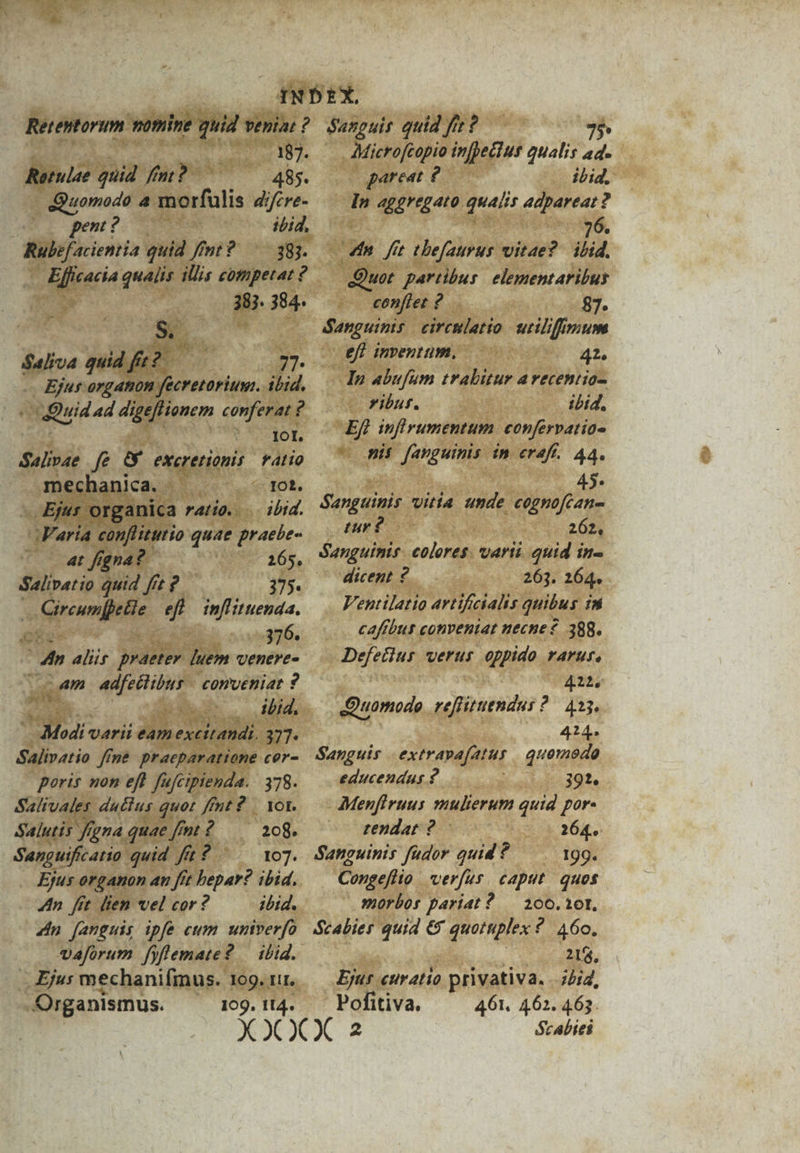 INDEX.
Retentorum nomine quid veniat ?
187.
Rotulae quid ſint ? 485.
Quomodo a morſulis diſcre-
pent ? ibid.
Rubefacientia quid ſint ? 383.
Efficacia qualis illis competat ?
383. 384.
S.
Saliva quid ſit ? 77.
Ejus organon ſecretorium. ibid.
Quid ad digeſtionem conferat ?
101.
Salivae ſe & excretionis ratio
mechanica. 101.
Ejus organica ratio. ibid.
Varia conſtitutio quae praebe-
at ſigna ? 265.
Salivatio quid ſit ? 375.
Circumſpecte eſt inſtituenda.
376.
An aliis praeter luem venere-
am adfectibus conveniat ?
ibid.
Modi varii eam excitandi. 377.
Salivatio ſine praeparatione cor-
poris non eſt ſuſcipienda. 378.
Salivales ductus quot ſint ? 101.
Salutis ſigna quae ſint ? 208.
Sanguificatio quid ſit ? 107.
Ejus organon an ſit hepar ? ibid.
An ſit lien vel cor ? ibid.
An ſanguis ipſe cum univerſo
vaſorum ſyſtemate ? ibid.
Ejus mechaniſmus. 109. 111.
Organismus. 109. 114.
Sanguis quid ſit ? 75.
Microſcopio inſpectus qualis ad-
pareat ? ibid.
In aggregato qualis adpareat ?
76.
An ſit theſaurus vitae ? ibid.
Quot partibus elementaribus
conſtet ? 87.
Sanguinis circulatio utiliſſimum
eſt inventum. 42.
In abuſum trahitur a recentio-
ribus. ibid.
Eſt inſtrumentum conſervatio-
nis ſanguinis in craſi. 44.
45.
Sanguinis vitia unde cognoſcan-
tur ? 262.
Sanguinis colores varii quid in-
dicent ? 263. 264.
Ventilatio artificialis quibus in
caſibus conveniat necne ? 388.
Defectus verus oppido rarus.
422.
Quomodo reſtituendus ? 423.
424.
Sanguis extravaſatus quomodo
educendus ? 392.
Menſtruus mulierum quid por-
tendat ? 264.
Sanguinis ſudor quid ? 199.
Congeſtio verſus caput quos
morbos pariat ? 200. 201.
Scabies quid & quotuplex ? 460.
218.
Ejus curatio privativa. ibid.
Poſitiva. 461. 462. 463
X X X X 2 Scabiei